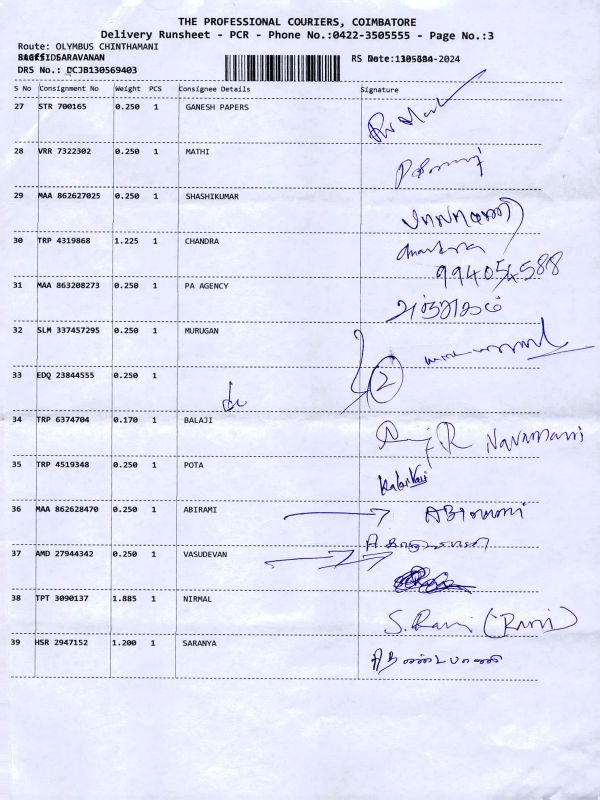 THE PROFESSIONAL COURIERS, COIMBATORE
Delivery Runsheet - PCR - Phone No.:0422-3505555 - Page No.:3
Route: OLYMBUS CHINTHAMANI
SARAVANAN RS Date: -2024
DRS No.: DCJB130569403
S No Consignment No Weight PCS Consignee Details Signature
27 STR 700165 0.250 1 GANESH PAPERS
28 VRR 7322302 0.250 1 MATHI
29 MAA 862627025 0.250 1 SHASHIKUMAR
30 TRP 4319868 1.225 1 CHANDRA
994054588
31 MAA 863208273 0.250 1 PA AGENCY
32 SLM 337457295 0.250 1 MURUGAN
33 EDQ 23844555 0.250 1 2
34 TRP 6374704 0.170 1 BALAJI R Navamani
35 TRP 4519348 0.250 1 POTA
36 MAA 862628470 0.250 1 ABIRAMI ABirami
37 AMD 27944342 0.250 1 VASUDEVAN
38 TPT 3090137 1.885 1 NIRMAL S. Rani (Rani)
39 HSR 2947152 1.200 1 SARANYA